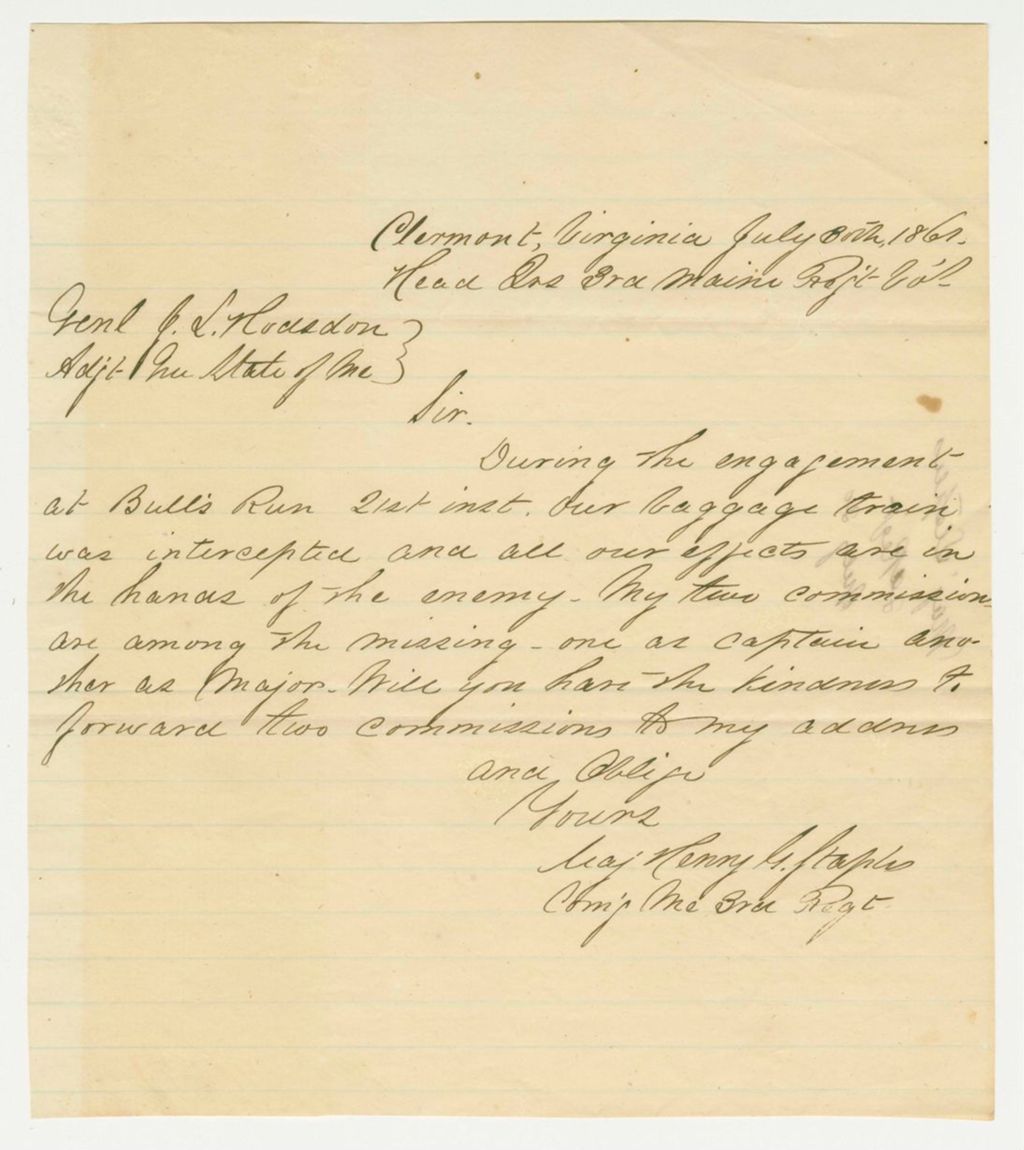 Clermont, Virginia July 30th, 1861.
Head Qrs 3rd Maine Reg't Vo'l
Genl J. L. Hodsdon
Adjt Gen State of Me
Sir.
During the engagement
at Bull's Run 21st inst. our baggage train
was intercepted and all our effects are in
the hands of the enemy - My two commissions
are among the missing - one as captain ano-
ther as Major - Will you have the kindness to
forward two commissions to my address
and Oblige
Yours
Maj Henry G. Staples
Com'g Me 3rd Regt.